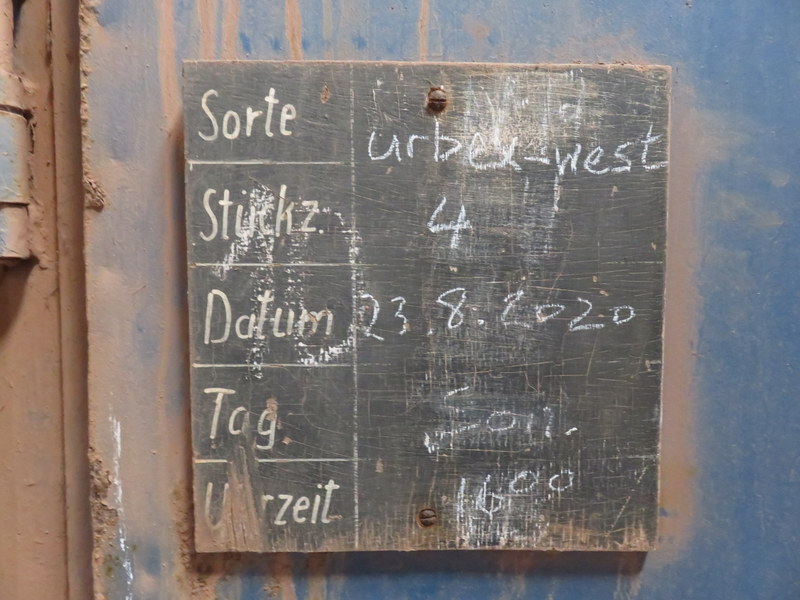 Sorte urbex-west
Stückz. 4
Datum 23.8.2020
Tag Son.
Uhrzeit 16 00